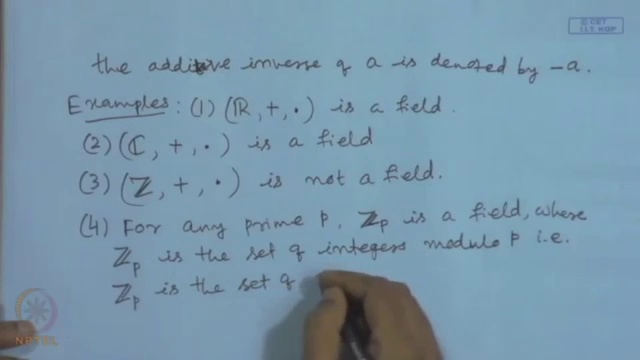 © CET
I.I.T. KGP
the additive inverse of a is denoted by -a.
Examples: (1) (ℝ, +, ·) is a field.
(2) (ℂ, +, ·) is a field
(3) (ℤ, +, ·) is not a field.
(4) For any prime p, ℤp is a field, where
ℤp is the set of integers modulo p i.e.
ℤp is the set of
NPTEL